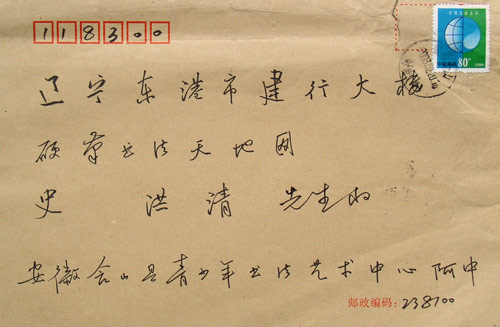 118300
80分
辽宁东港市建行大楼
硬笔书法天地网
史洪清先生收
安徽含山县青少年书法艺术中心阿中
邮政编码：238100